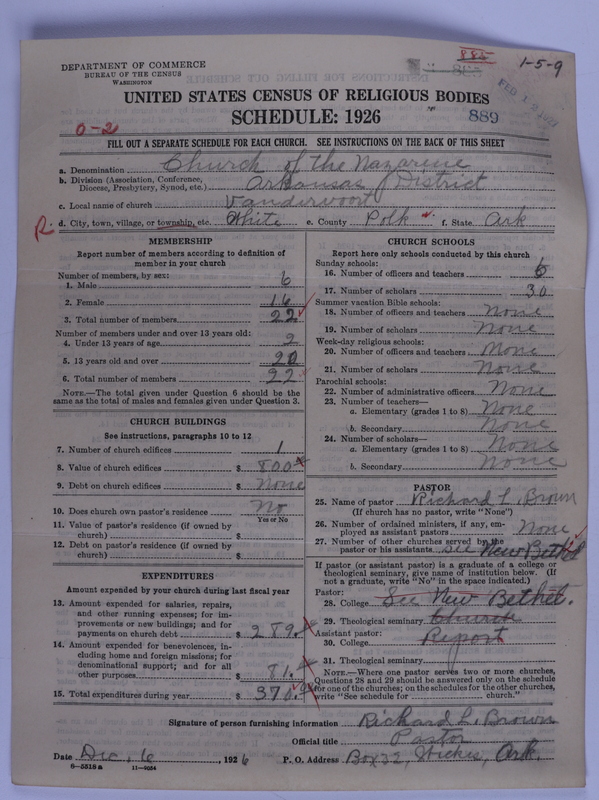 885
1-5-9
DEPARTMENT OF COMMERCE
BUREAU OF THE CENSUS
WASHINGTON
FEB 1 2 1927
UNITED STATES CENSUS OF RELIGIOUS BODIES
SCHEDULE: 1926
889
0-2
FILL OUT A SEPARATE SCHEDULE FOR EACH CHURCH. SEE INSTRUCTIONS ON THE BACK OF THIS SHEET
a. Denomination Church of the Nazarene
b. Division (Association, Conference,
Diocese, Presbytery, Synod, etc.) Arkansas District
c. Local name of church Vandervoort
R. d. City, town, village, or township, etc. White e. County Polk f. State Ark
MEMBERSHIP
Report number of members according to definition of
member in your church
Number of members, by sex:
1. Male 6
2. Female 16
3. Total number of members 22
Number of members under and over 13 years old:
4. Under 13 years of age 2
5. 13 years old and over 20
6. Total number of members 22
NOTE.—The total given under Question 6 should be the
same as the total of males and females given under Question 3.
CHURCH BUILDINGS
See instructions, paragraphs 10 to 12
7. Number of church edifices 1
8. Value of church edifices $ 800
9. Debt on church edifices $ None
10. Does church own pastor's residence? No
Yes or No
11. Value of pastor's residence (if owned by
church) $
12. Debt on pastor's residence (if owned by
church) $
EXPENDITURES
Amount expended by your church during last fiscal year
13. Amount expended for salaries, repairs,
and other running expenses; for im-
provements or new buildings; and for
payments on church debt $ 289.
14. Amount expended for benevolences, in-
cluding home and foreign missions; for
denominational support; and for all
other purposes $ 81.
15. Total expenditures during year $ 370.
CHURCH SCHOOLS
Report here only schools conducted by this church
Sunday schools:
16. Number of officers and teachers 6
17. Number of scholars 30
Summer vacation Bible schools:
18. Number of officers and teachers None
19. Number of scholars None
Week-day religious schools:
20. Number of officers and teachers None
21. Number of scholars None
Parochial schools:
22. Number of administrative officers None
23. Number of teachers—
a. Elementary (grades 1 to 8) None
b. Secondary None
24. Number of scholars—
a. Elementary (grades 1 to 8) None
b. Secondary None
PASTOR
25. Name of pastor Richard L. Brown
(If church has no pastor, write "None")
26. Number of ordained ministers, if any, em-
ployed as assistant pastors None
27. Number of other churches served by the
pastor or his assistants see New Bethel
If pastor (or assistant pastor) is a graduate of a college or
theological seminary, give name of institution below. (If
not a graduate, write "No" in the space indicated.)
Pastor:
28. College See New Bethel.
29. Theological seminary Church
Assistant pastor:
30. College Report
31. Theological seminary
NOTE.—Where one pastor serves two or more churches,
Questions 28 and 29 should be answered only on the schedule
for one of the churches; on the schedules for the other churches,
write "See schedule for church."
Signature of person furnishing information Richard L. Brown
Official title Pastor
Date Dec. 6, 1926 P. O. Address Box 32, Ark.
8—5518a 11—9054